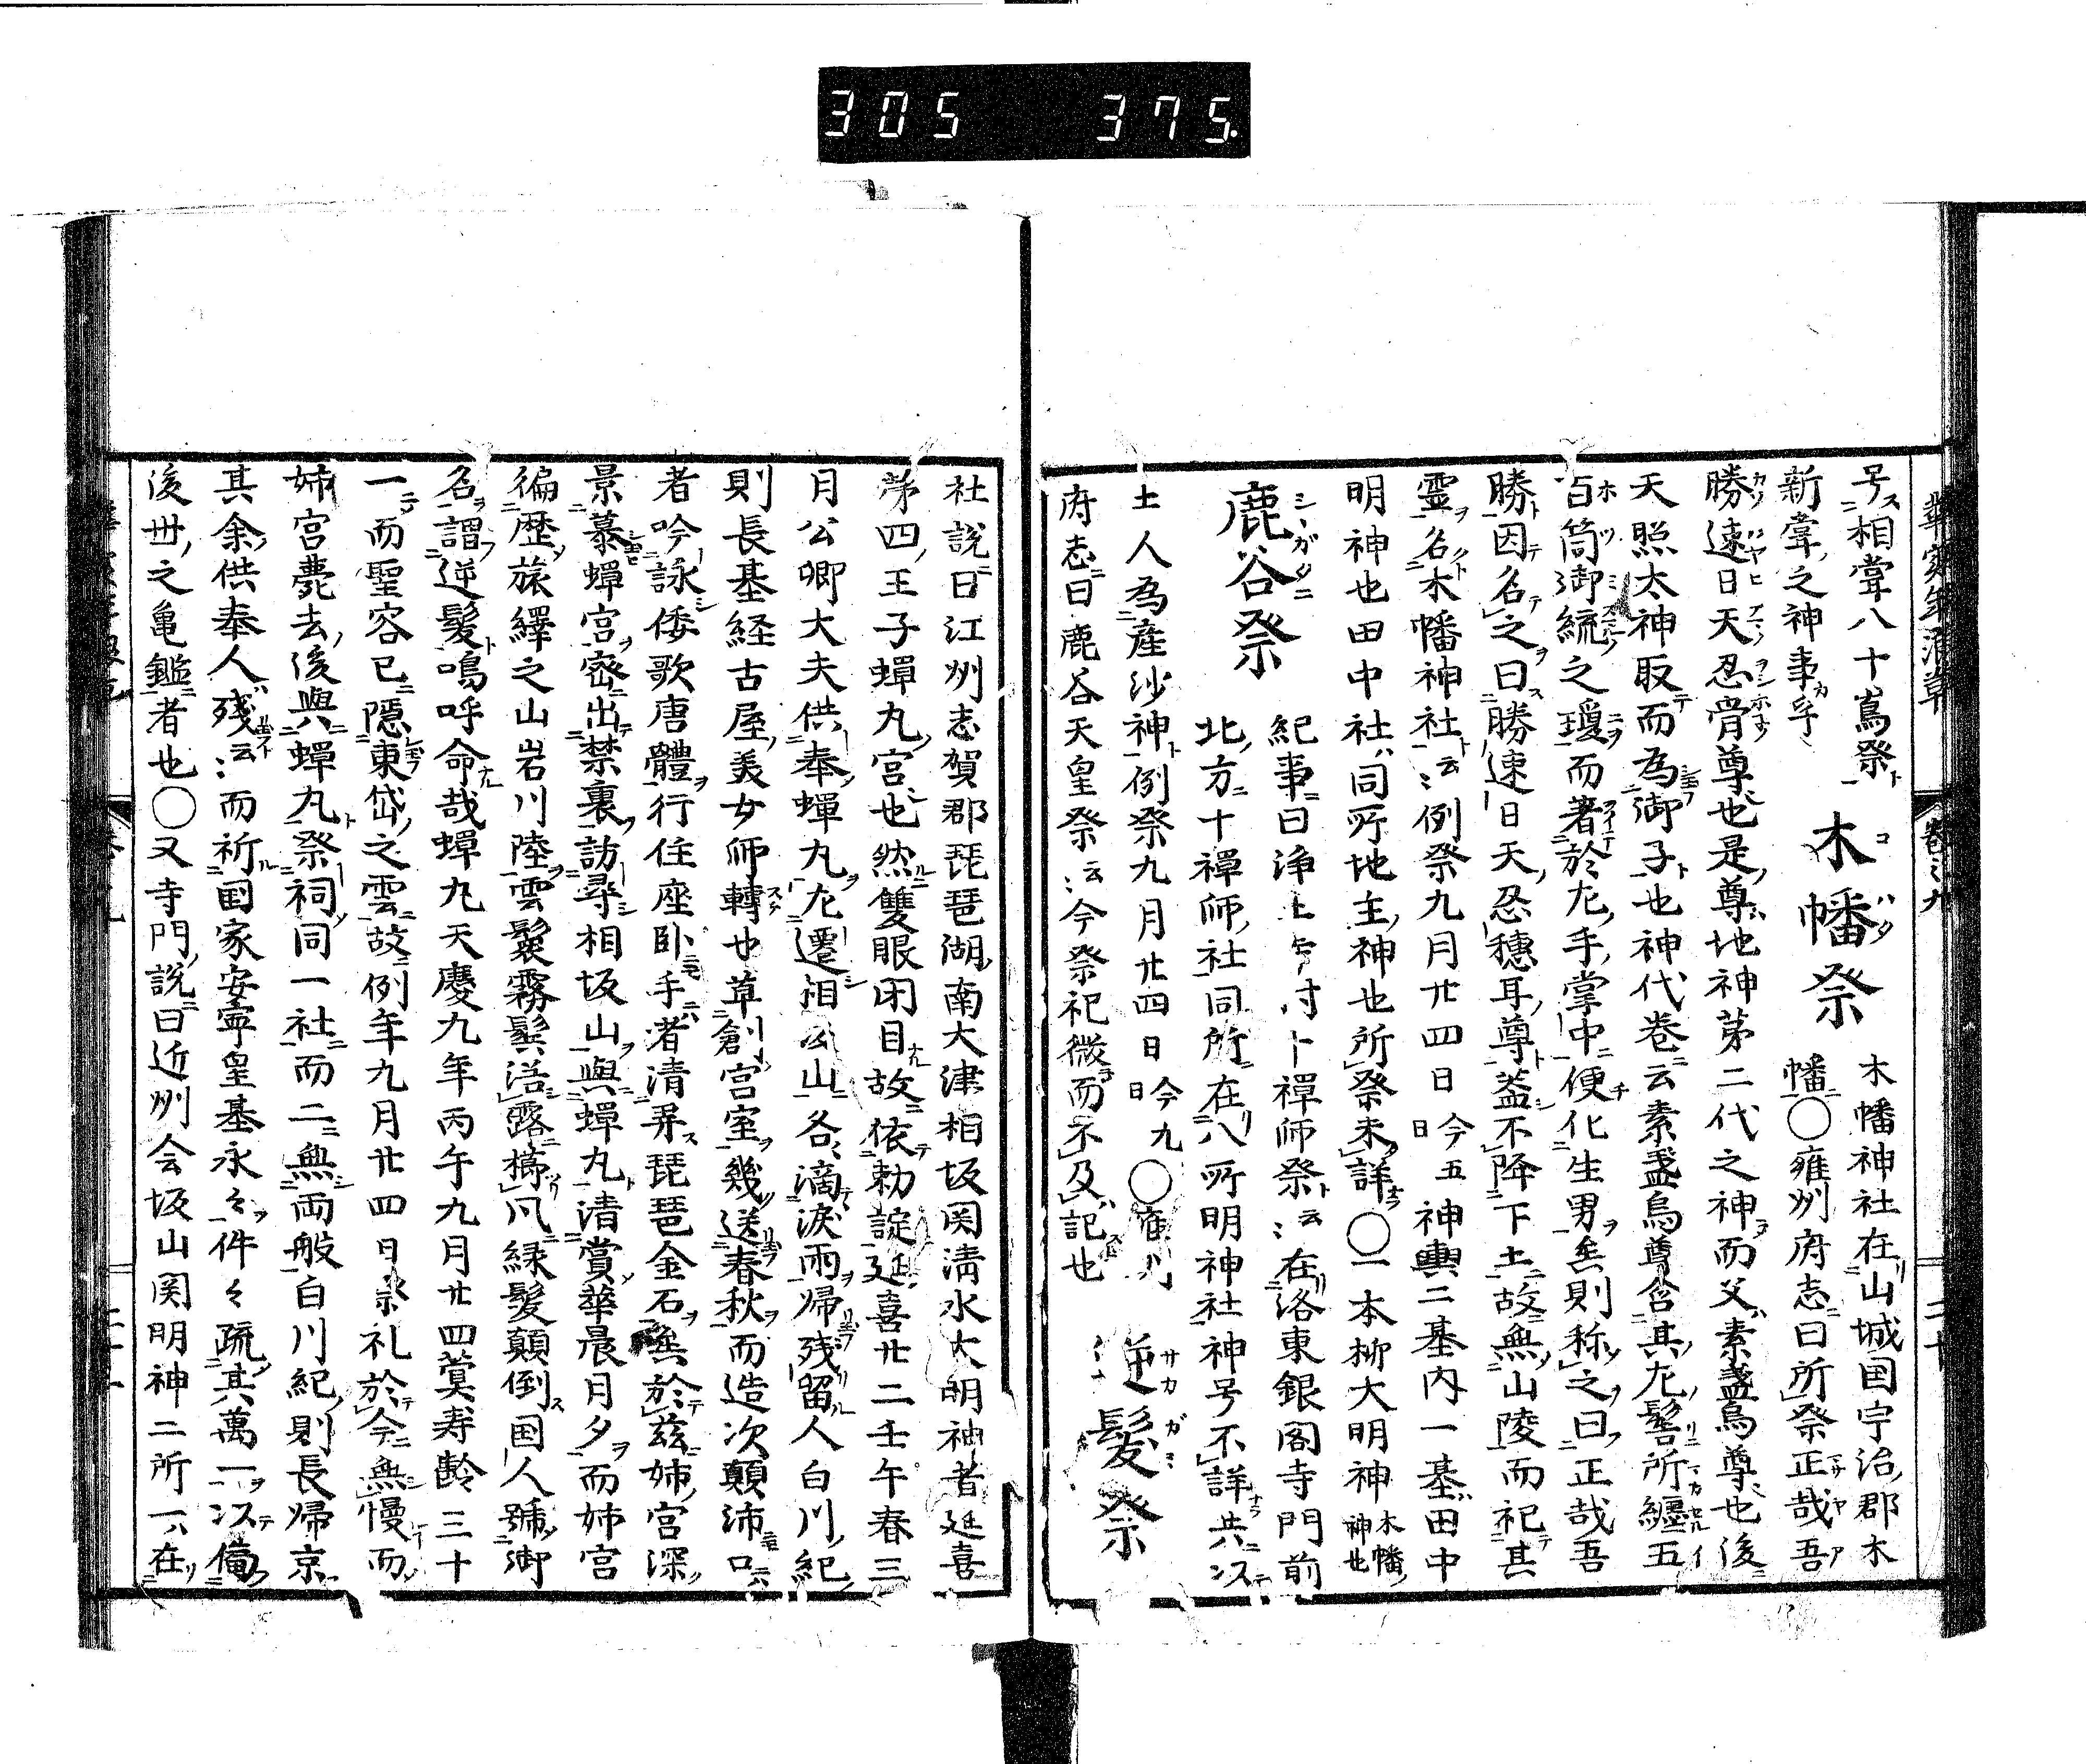 305 375.
号相嘗八十嶌祭 木幡祭 木幡神社在山城国宇治郡木
新嘗之神事乎 幡○雍州府志曰所祭正哉吾
勝速日天忍骨尊也是尊地神苐二代之神而父素盞烏尊也後
天照太神取而為御子也神代卷云素盞烏尊含其左髻所纏五
百箇御統之瓊而著於左手掌中便化生男矣則称之曰正哉吾
勝因名之曰勝速日天忍穗耳尊蓋不降下土故無山陵而祀其
霊名木幡神社云云例祭九月廿四日今五日神輿二基内一基田中
明神也田中社同所地主神也所祭未詳○一本柳大明神木幡神也
鹿谷祭 紀事曰浄土寺村十禅師祭云云在洛東銀閣寺門前
北方十禅師社同所在八所明神社神号不詳共以
土人為産沙神例祭九月廿四日今九日○雍州
府志曰鹿谷天皇祭云云今祭祀微而不及記也 逆髪祭
社説曰江州志賀郡琵琶湖南大津相坂関清水大明神者延喜
第四王子蝉丸宮也然雙眼閉目故依勅諚延喜廿二壬午春三
月公卿大夫供奉蝉丸左遷相公山各滴涙雨帰残留人白川紀
則長基経古屋美女師轉也草創宮室幾送春秋而造次顛沛口
者吟詠倭歌唐體行住座臥手者清弄琵琶金石矣於茲姉宮深
景慕蝉宮密出禁裏訪尋相坂山與蝉丸清賞華晨月夕而姉宮
徧歴旅繹之山岩川陸雲鬟霧鬂浯露櫛風緑髪顛倒国人號御
名謂逆髪嗚呼命哉蝉丸天慶九年丙午九月廿四蓂寿齢三十
一而聖容已隠東岱之雲故例年九月廿四日祭礼於今無慢而
姉宮薨去後與蝉丸祭祠同一社而二無両般白川紀則長帰京
其余供奉人残云云而祈国家安寧皇基永々件々疏其萬一以備
後丗之亀鑑者也○又寺門説曰近州会坂山関明神二所一在